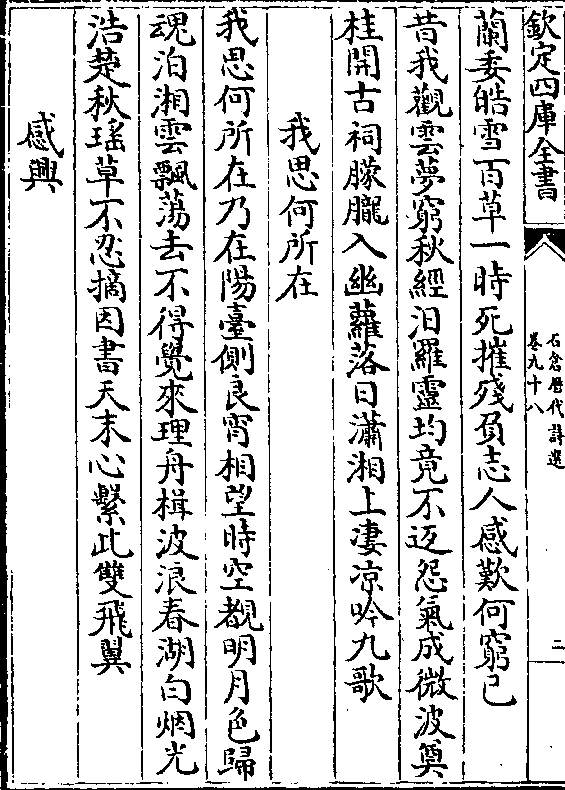 欽定四庫全書
石倉歷代詩選
卷九十八
二
蘭委皓雪百草一時死摧殘負志人感歎何窮已
昔我觀雲夢窮秋經汨羅靈均竟不返怨氣成微波奠
桂開古祠朦朧入幽蘿落日瀟湘上凄凉吟九歌
我思何所在
我思何所在乃在陽臺側良宵相望時空覩明月色歸
魂泊湘雲飄蕩去不得覺來理舟楫波浪春湖白烟光
浩楚秋瑤草不忍摘因書天末心繫此雙飛翼
感興